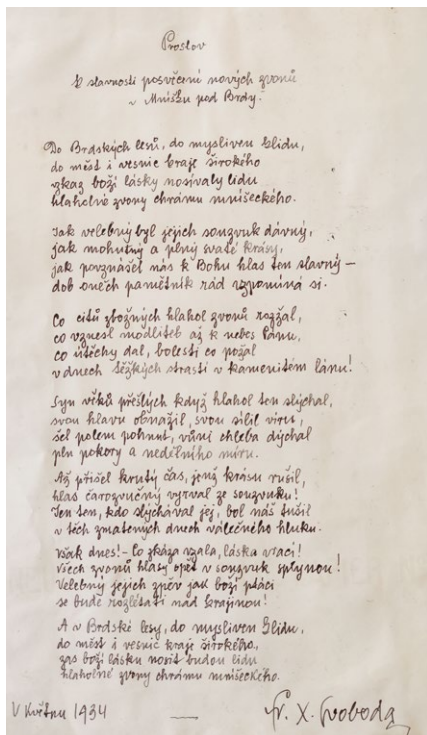 Proslov
K slavnosti posvěcení nových zvonů
v Mníšku pod Brdy.
Do Brdských lesů, do mysliven klidu,
do měst i vesnic kraje širokého
vzkaz boží lásky nosívaly lidu
hlaholné zvony chrámu mníšeckého.
Jak velebný byl jejich souzvuk dávný,
jak mohutný a plný svaté krásy,
jak povznášel nás k Bohu hlas ten slavný –
dob oněch pamětník rád vzpomíná si.
Co citů zbožných hlahol zvonů rozžal,
co vznesl modliteb až k nebes Pánu,
co útěchy dal, bolesti co požal
v dnech těžkých strastí v kamenitém lánu!
Syn věků přešlých když hlahol ten slýchal,
svou hlavu obnažil, svou sílil víru,
šel polem pohnut, vůni chleba dýchal
pln pokory a nedělního míru.
Až přišel krutý čas, jenž krásu rušil,
hlas čarozvučný vyrval ze souzvuku!
Jen ten, kdo slýchával jej, bol náš tušil
v těch zmatených dnech válečného hluku.
Však dnes! – Co zkáza vzala, láska vrací!
Všech zvonů hlasy opět v souzvuk splynou!
Velebný jejich zpěv jak boží ptáci
se bude rozlétati nad krajinou!
A v Brdské lesy, do mysliven klidu,
do měst i vesnic kraje širokého,
zas boží lásku nosit budou lidu
hlaholné zvony chrámu mníšeckého.
V Květnu 1934
Fr. X. Svoboda